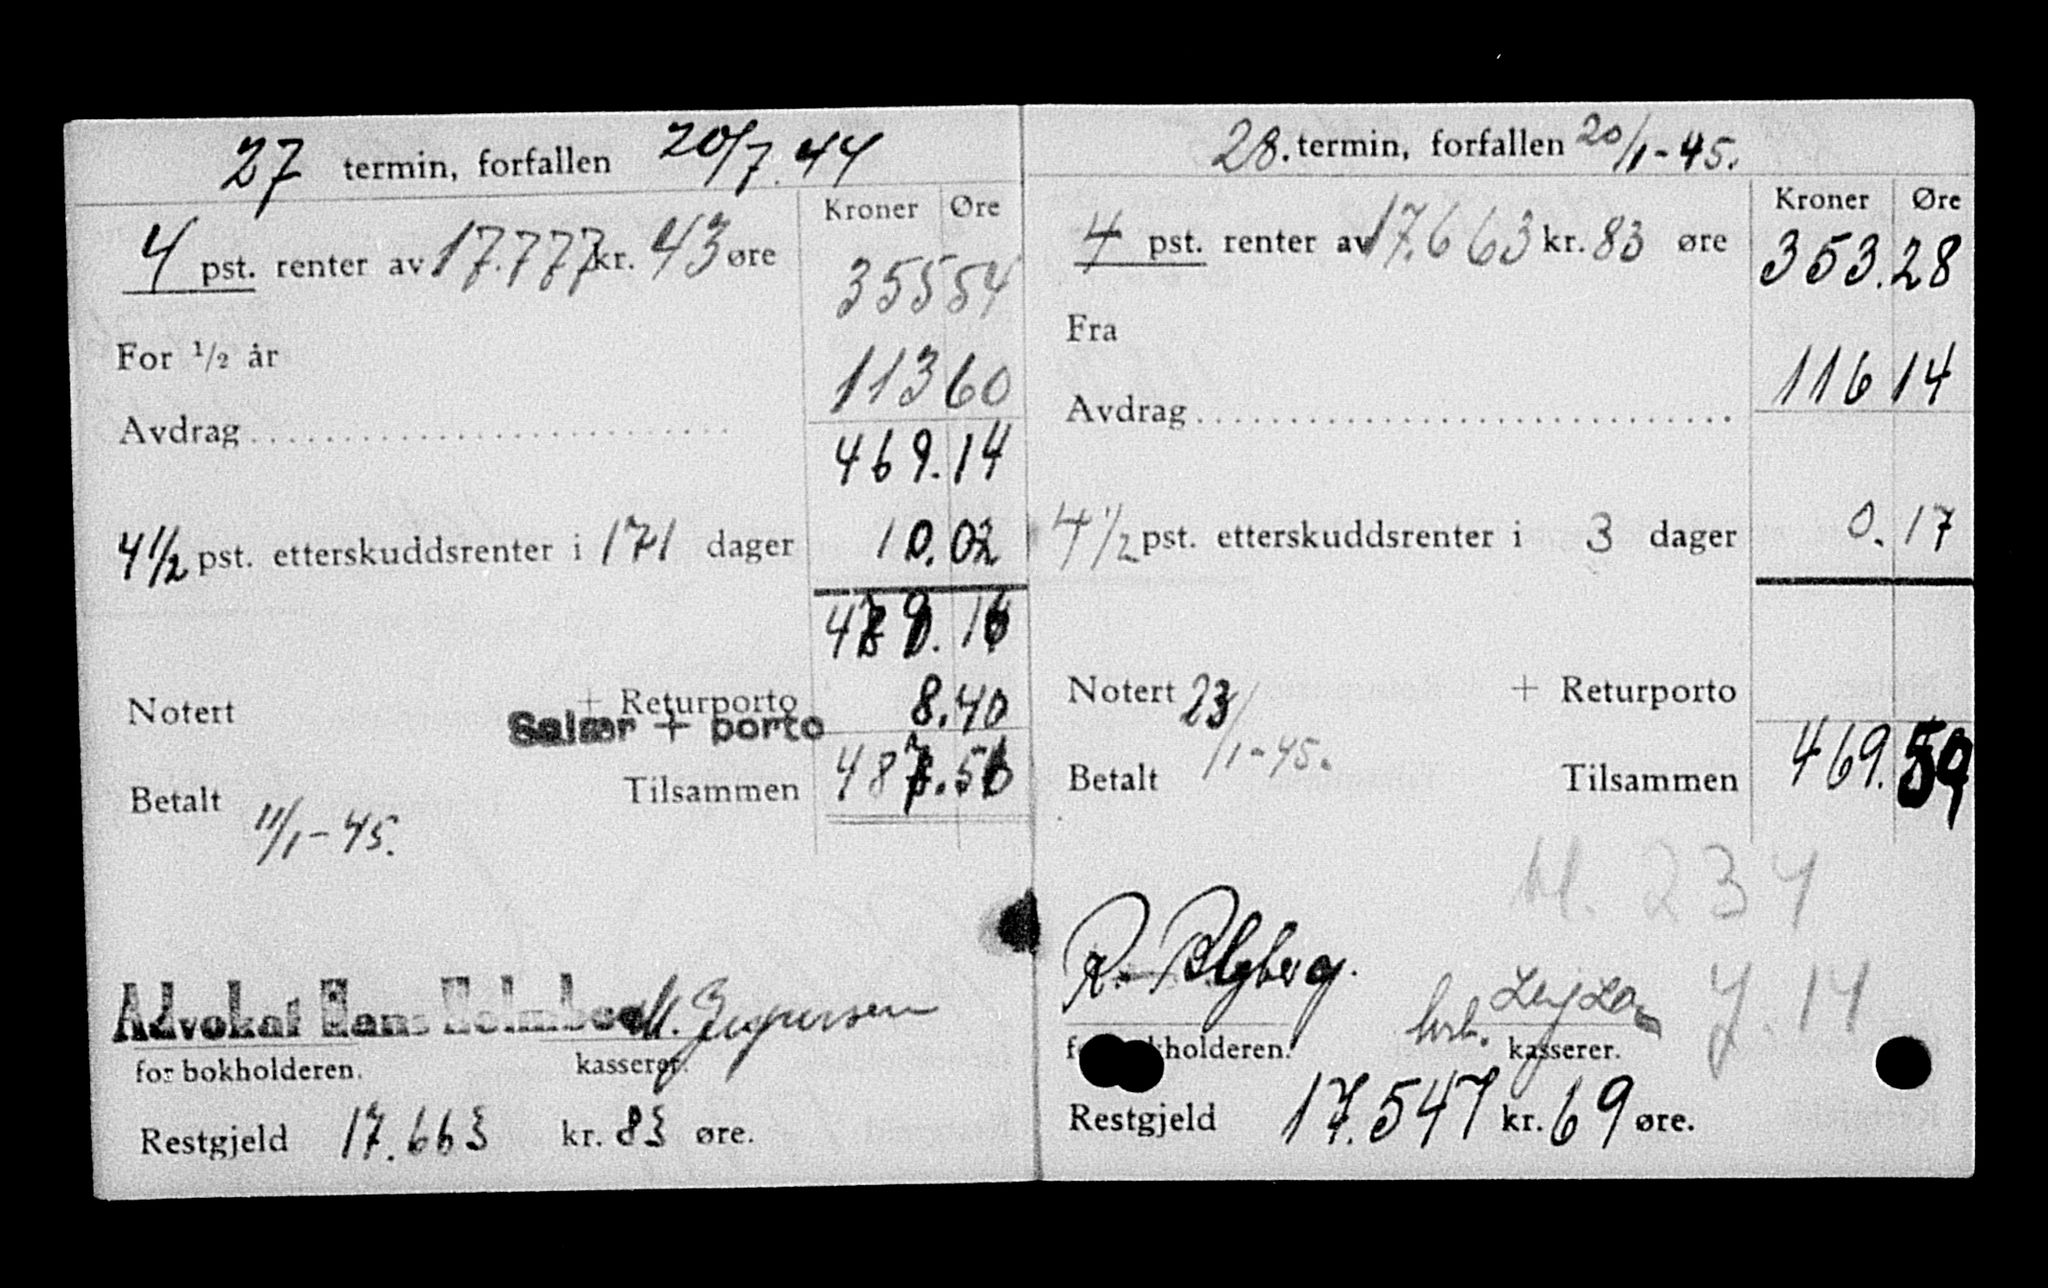 27 termin, forfallen 20/7.44
Kroner Øre
4 pst. renter av 17.777 kr. 43 øre 355 54
For ½ år
113 60
Avdrag
469.14
4½ pst. etterskuddsrenter i 171 dager 10.02
479.16
Notert + Returporto 8.40
Salær + porto
Betalt 11/1-45. Tilsammen 487.56
Advokat Hans Holmboe
for bokholderen. kasserer.
Restgjeld 17.663 kr. 83 øre.
28. termin, forfallen 20/1-45.
Kroner Øre
4 pst. renter av 17.663 kr. 83 øre 353.28
Fra
116 14
Avdrag
4½ pst. etterskuddsrenter i 3 dager 0.17
Notert 23/1-45. + Returporto
Betalt Tilsammen 469.59
bl. 234
J. 14
for bokholderen. kasserer.
Restgjeld 17.547 kr. 69 øre.